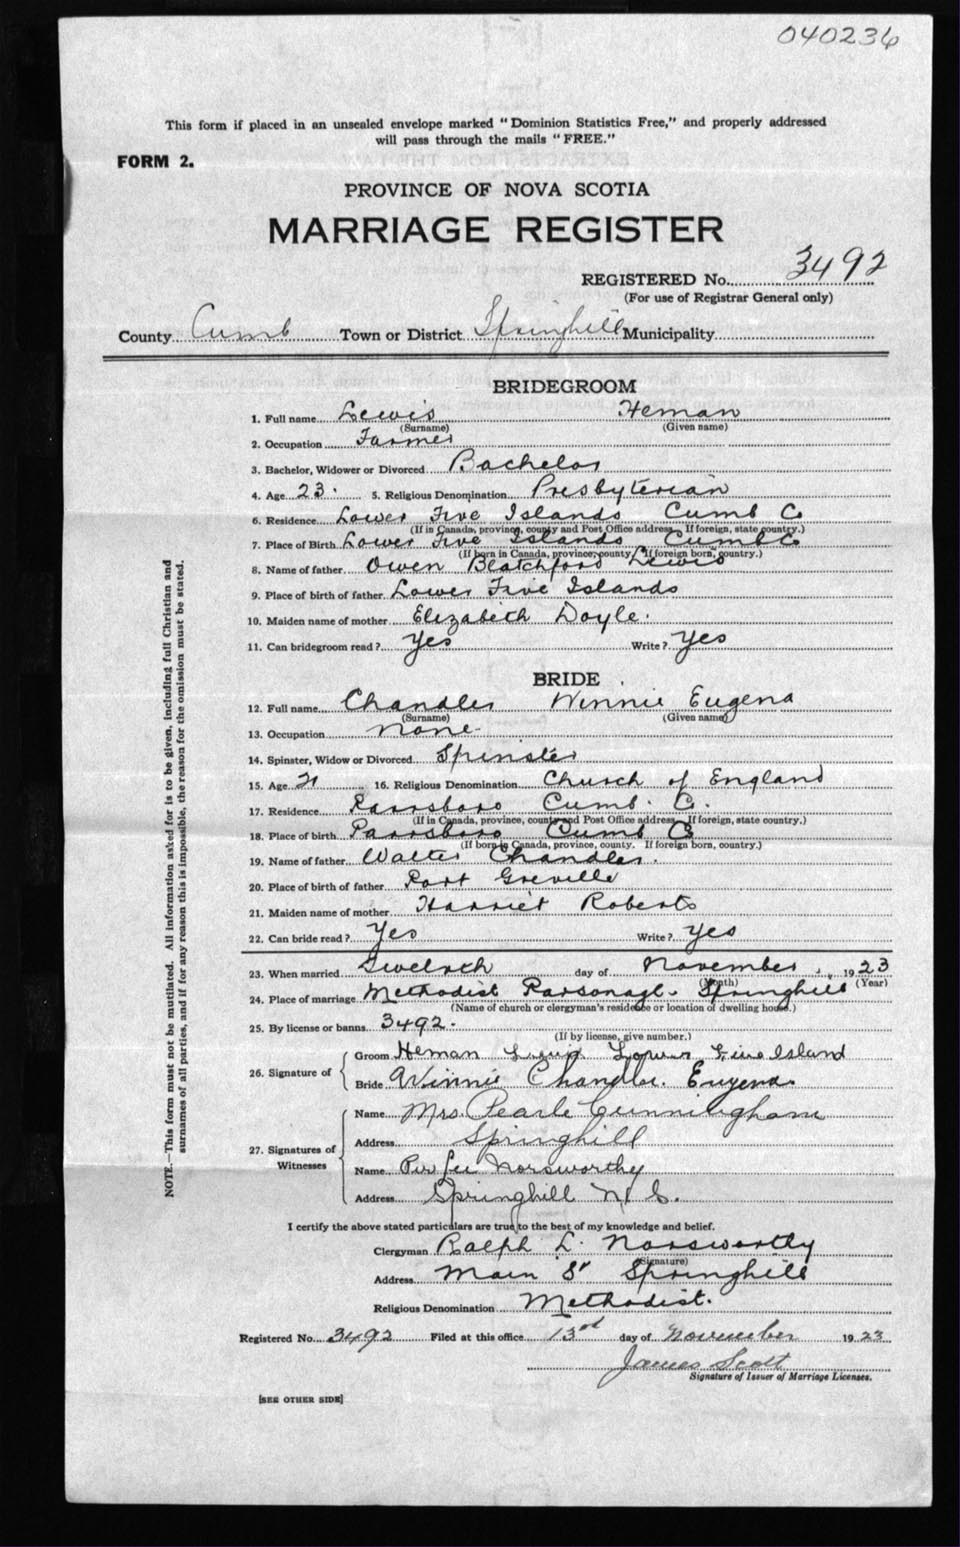 040236
This form if placed in an unsealed envelope marked "Dominion Statistics Free," and properly addressed
will pass through the mails "FREE."
FORM 2.
PROVINCE OF NOVA SCOTIA
MARRIAGE REGISTER
REGISTERED No. 3492
(For use of Registrar General only)
County Cumb Town or District Springhill Municipality
BRIDEGROOM
1. Full name Lewis Heman
(Surname) (Given name)
2. Occupation Farmer
3. Bachelor, Widower or Divorced Bachelor
4. Age 23. 5. Religious Denomination Presbyterian
6. Residence Lower Five Islands Cumb Co
(If in Canada, province, county and Post Office address. If foreign, state country.)
7. Place of Birth Lower Five Islands Cumb Co
(If born in Canada, province, county. If foreign born, country.)
8. Name of father Owen Blatchford Lewis
9. Place of birth of father Lower Five Islands
10. Maiden name of mother Elizabeth Doyle.
11. Can bridegroom read? Yes Write? Yes
BRIDE
12. Full name Chandler Winnie Eugena
(Surname) (Given name)
13. Occupation None
14. Spinster, Widow or Divorced Spinster
15. Age 21 16. Religious Denomination Church of England
17. Residence Parrsboro Cumb. Co.
(If in Canada, province, county and Post Office address. If foreign, state country.)
18. Place of birth Parrsboro Cumb Co
(If born in Canada, province, county. If foreign born, country.)
19. Name of father Walter Chandler.
20. Place of birth of father Port Greville
21. Maiden name of mother Harriet Roberts
22. Can bride read? Yes Write? Yes
23. When married Twelvth day of November 1923
(Month) (Year)
24. Place of marriage Methodist Parsonage Springhill
(Name of church or clergyman's residence or location of dwelling house.)
25. By license or banns 3492.
(If by license, give number.)
26. Signature of
Groom Heman Lewis Lower Five Island
Bride Winnie Chandler. Eugena
27. Signatures of Witnesses
Name Mrs. Pearle Cunningham
Address Springhill
Name Norsworthy
Address Springhill N.S.
I certify the above stated particulars are true to the best of my knowledge and belief.
Clergyman Ralph L. Norsworthy
(Signature)
Address Main St Springhill
Religious Denomination Methodist.
Registered No. 3492 Filed at this office 13rd day of November 1923
James Scott
Signature of Issuer of Marriage Licenses.
[SEE OTHER SIDE]
NOTE.—This form must not be mutilated. All information asked for is to be given, including full Christian and
surnames of all parties, and if for any reason this is impossible, the reason for the omission must be stated.